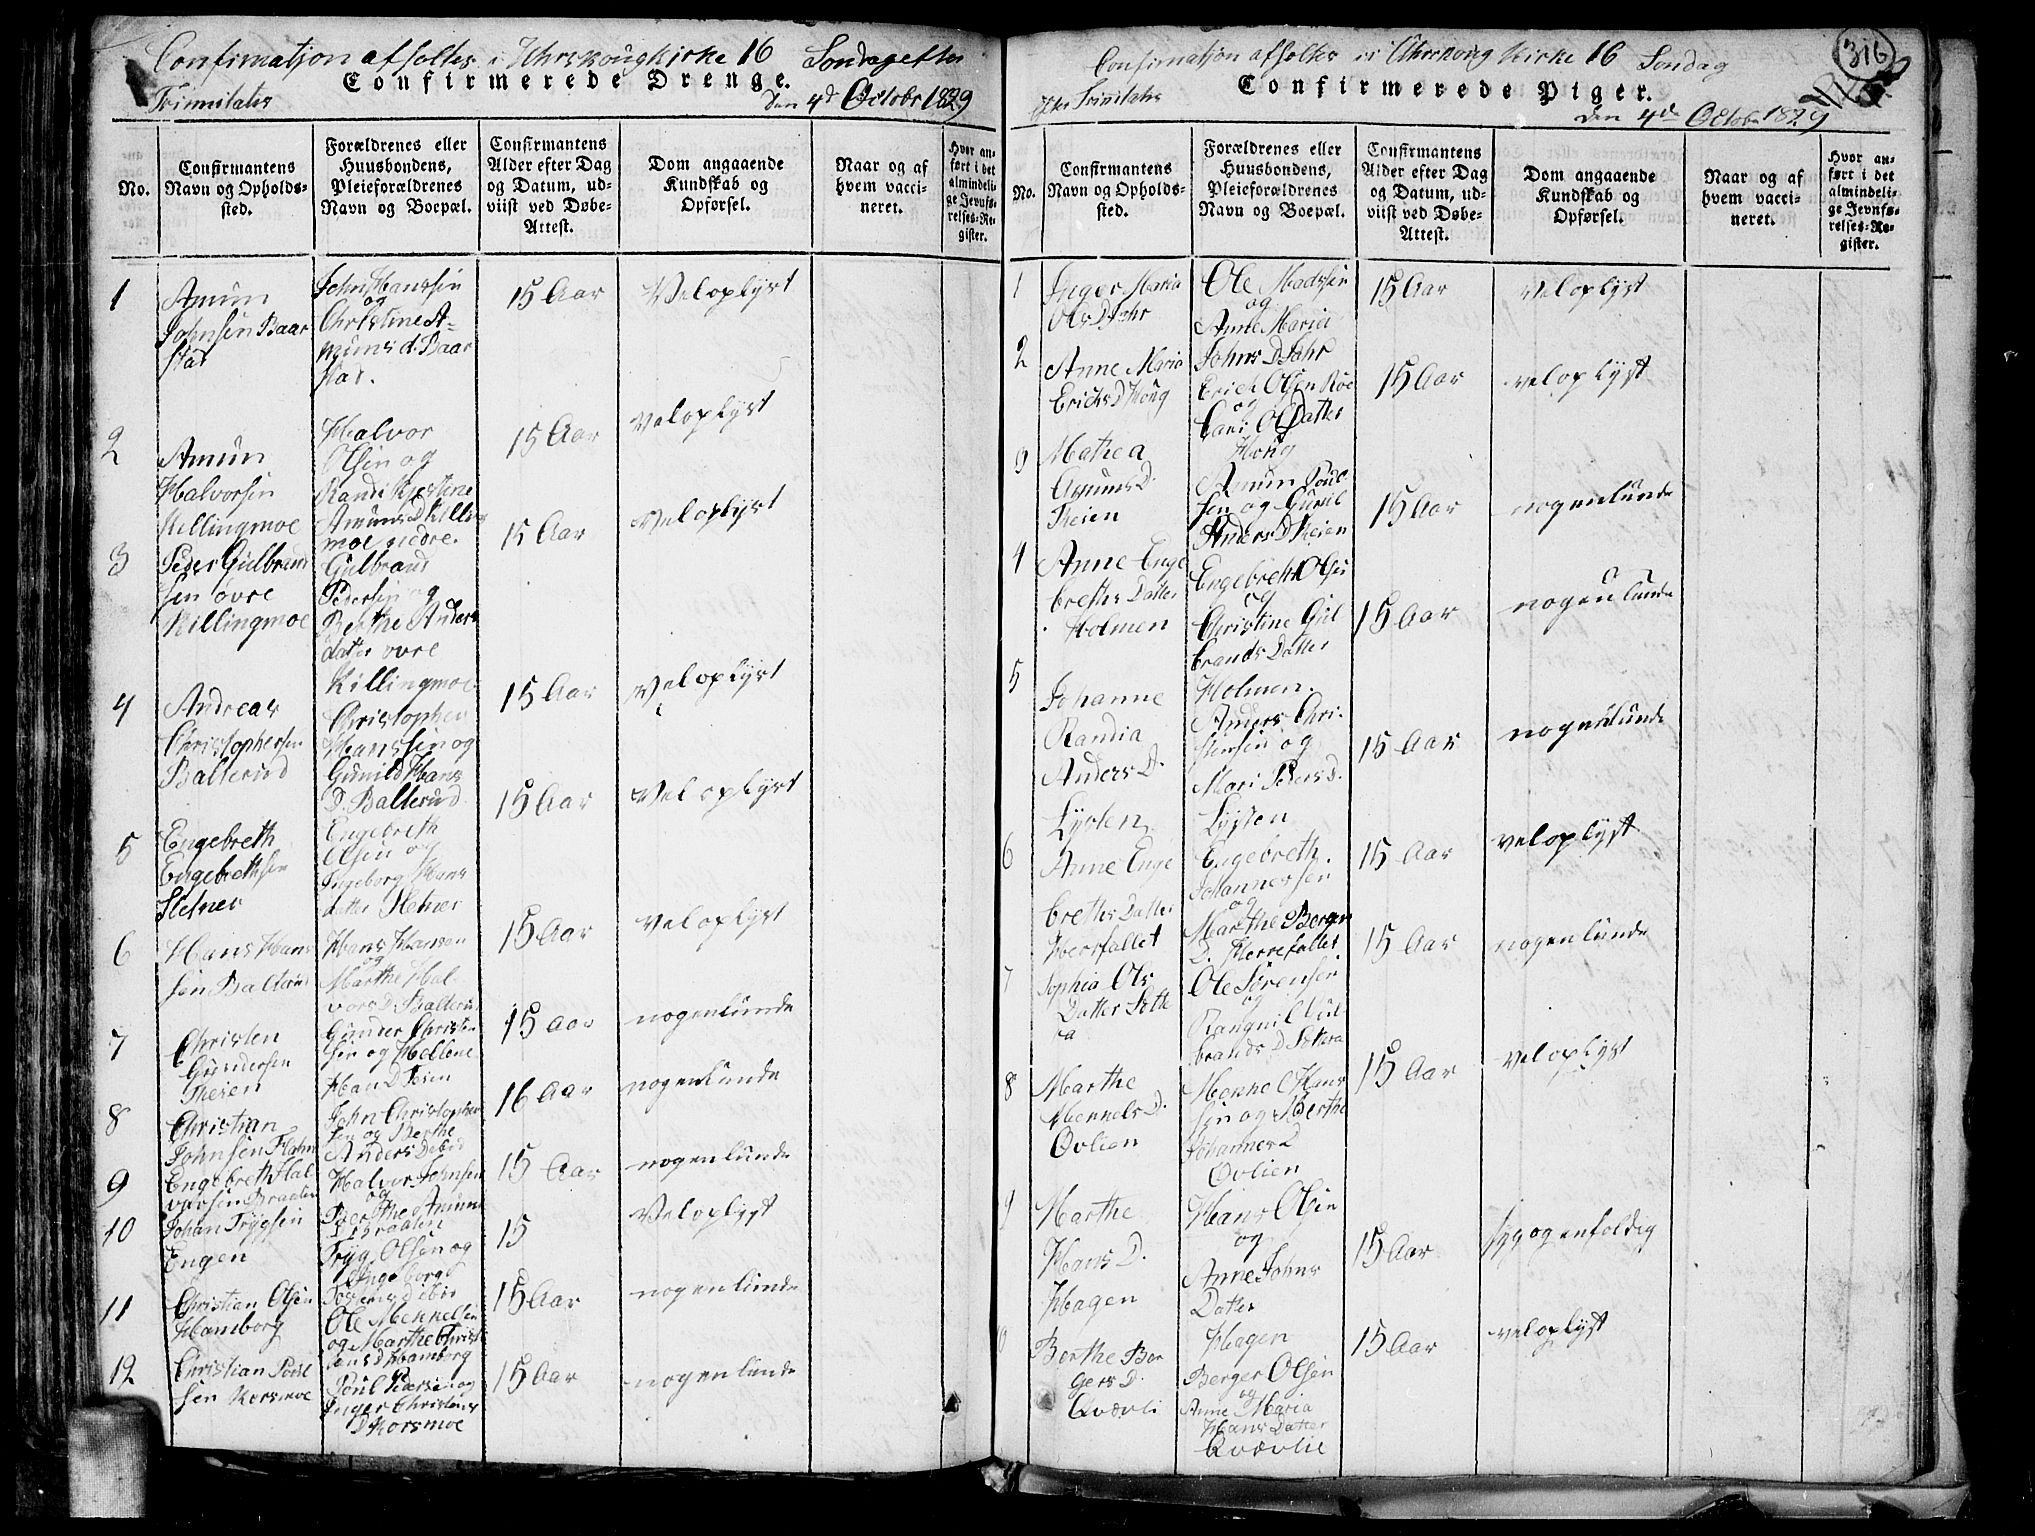 Confirmation afholtes i Uhrskougkirke 16 Sondag efter
Confirmerede Drenge.
Trinnitatis den 4d Octobr 1829
No.
Confirmantens Navn og Opholds-sted.
Forældrenes eller Huusbondens, Pleieforældrenes Navn og Boepæl.
Confirmantens Alder efter Dag og Datum, ud-viist ved Døbe-Attest.
Dom angaaende Kundskab og Opførsel.
Naar og af hvem vacci-neret.
Hvor an-ført i det almindeli-ge Jevnfø-relses-Re-gister.
1
Amun
Johnsen Baar
stad
John Hanssen
og
Christine A-
muns d. Baar
stad.
15 Aar
Veloplyst
2
Amun
Halvorsen
Killingmoe
Halvor
Olsen og
Randi Kjestine
Amuns D Killing
moe nedre.
15 Aar
Veloplyst
3
Peder Gulbrand
sen øvre
Killingmoe
Gulbrand
Pedersen og
Berthe Anders
datter øvre
Killingmoe
15 Aar
Veloplyst
4
Andreas
Christophersen
Balterud
Christopher
Hanssen og
Gunild Hans
D. Balterud
15 Aar
Veloplyst
5
Engebreth
Engebrethsen
Stefner
Engebreth
Olsen og
Ingeborg Hans
datter Stefner
15 Aar
Veloplyst
6
Hans Hans
sen Balterud
Hans Hansen
og
Marthe Hal
vors D. Balterud
15 Aar
Veloplyst
7
Christen
Gundersen
Theien
Gunder Christen
sen og Hellene
Han D Teien
15 Aar
nogenlunde
8
Christian
Johnsen
John Christopher
sen og Berthe
Anders D
16 Aar
nogenlunde
9
Engebreth Hal
vorsen Braaten
Halvor Johnsen
og
Berthe Amuns
D Braaten
15 Aar
nogenlunde
10
Johan Trygsen
Engen
Tryg Olsen og
Ingeborg
15
Veloplyst
11
Christian Olsen
Hamborg
Ole Mennelsen
og Marthe Christ
ens D Hamborg
15 Aar
nogenlunde
12
Christian Poul
sen Korsmoe
Poul Pedersen og
Inger Christens
D Korsmoe
15 Aar
nogenlunde
Confirmation afholtes i Uhrskoug Kirke 16 Sondag
316
Confirmerede Piger.
efter Trinitatis den 4de Octobr 1829
No.
Confirmantens Navn og Opholds-sted.
Forældrenes eller Huusbondens, Pleieforældrenes Navn og Boepæl.
Confirmantens Alder efter Dag og Datum, ud-viist ved Døbe-Attest.
Dom angaaende Kundskab og Opførsel.
Naar og af hvem vacci-neret.
Hvor an-ført i det almindeli-ge Jevnfø-relses-Re-gister.
1
Inger Maria
Ols D Jahr
Ole Madssen
og
Anne Maria
Johns D Jahr
15 Aar
veloplyst
2
Anne Maria
Erichs D Houg
Erich Olsen
og
Olsdatter
Houg
15 Aar
veloplyst
3
Mathea
Amuns D.
Theien
Amun Poul
sen og Guril
Anders D Theien
15 Aar
nogenlunde
4
Anne Enge
breths Datter
Holmen
Engebreth Olsen
og
Christine Gul
brands Datter
Holmen.
15 Aar
nogenlunde
5
Johanne
Randia
Anders D.
Lysten
Anders Chri-
stensen og
Mari Peders D.
Lysten
15 Aar
nogenlunde
6
Anne Enge
breths Datter
Herrefallet
Engebreth
Johannessen
og
Marthe Berger
D. Herrefallet
15 Aar
veloplyst
7
Sophia Ols
Datter Sethe
ra
Ole Sørensen
og
Rangnil Gul
brands D Sethera
15 Aar
nogenlunde
8
Marthe
Mennels D.
Ovlien
Mennel Hans
sen og Berthe
Johannes D
Ovlien
15 Aar
veloplyst
9
Marthe
Hans D.
Hagen
Hans Olsen
og
Anne Johns
Datter
Hagen
15 Aar
syg og enfoldig
10
Berthe Ber
gers D.
Qværli
Berger Olsen
og
Anne Maria
Hans Datter
Qværlie
15 Aar
veloplyst